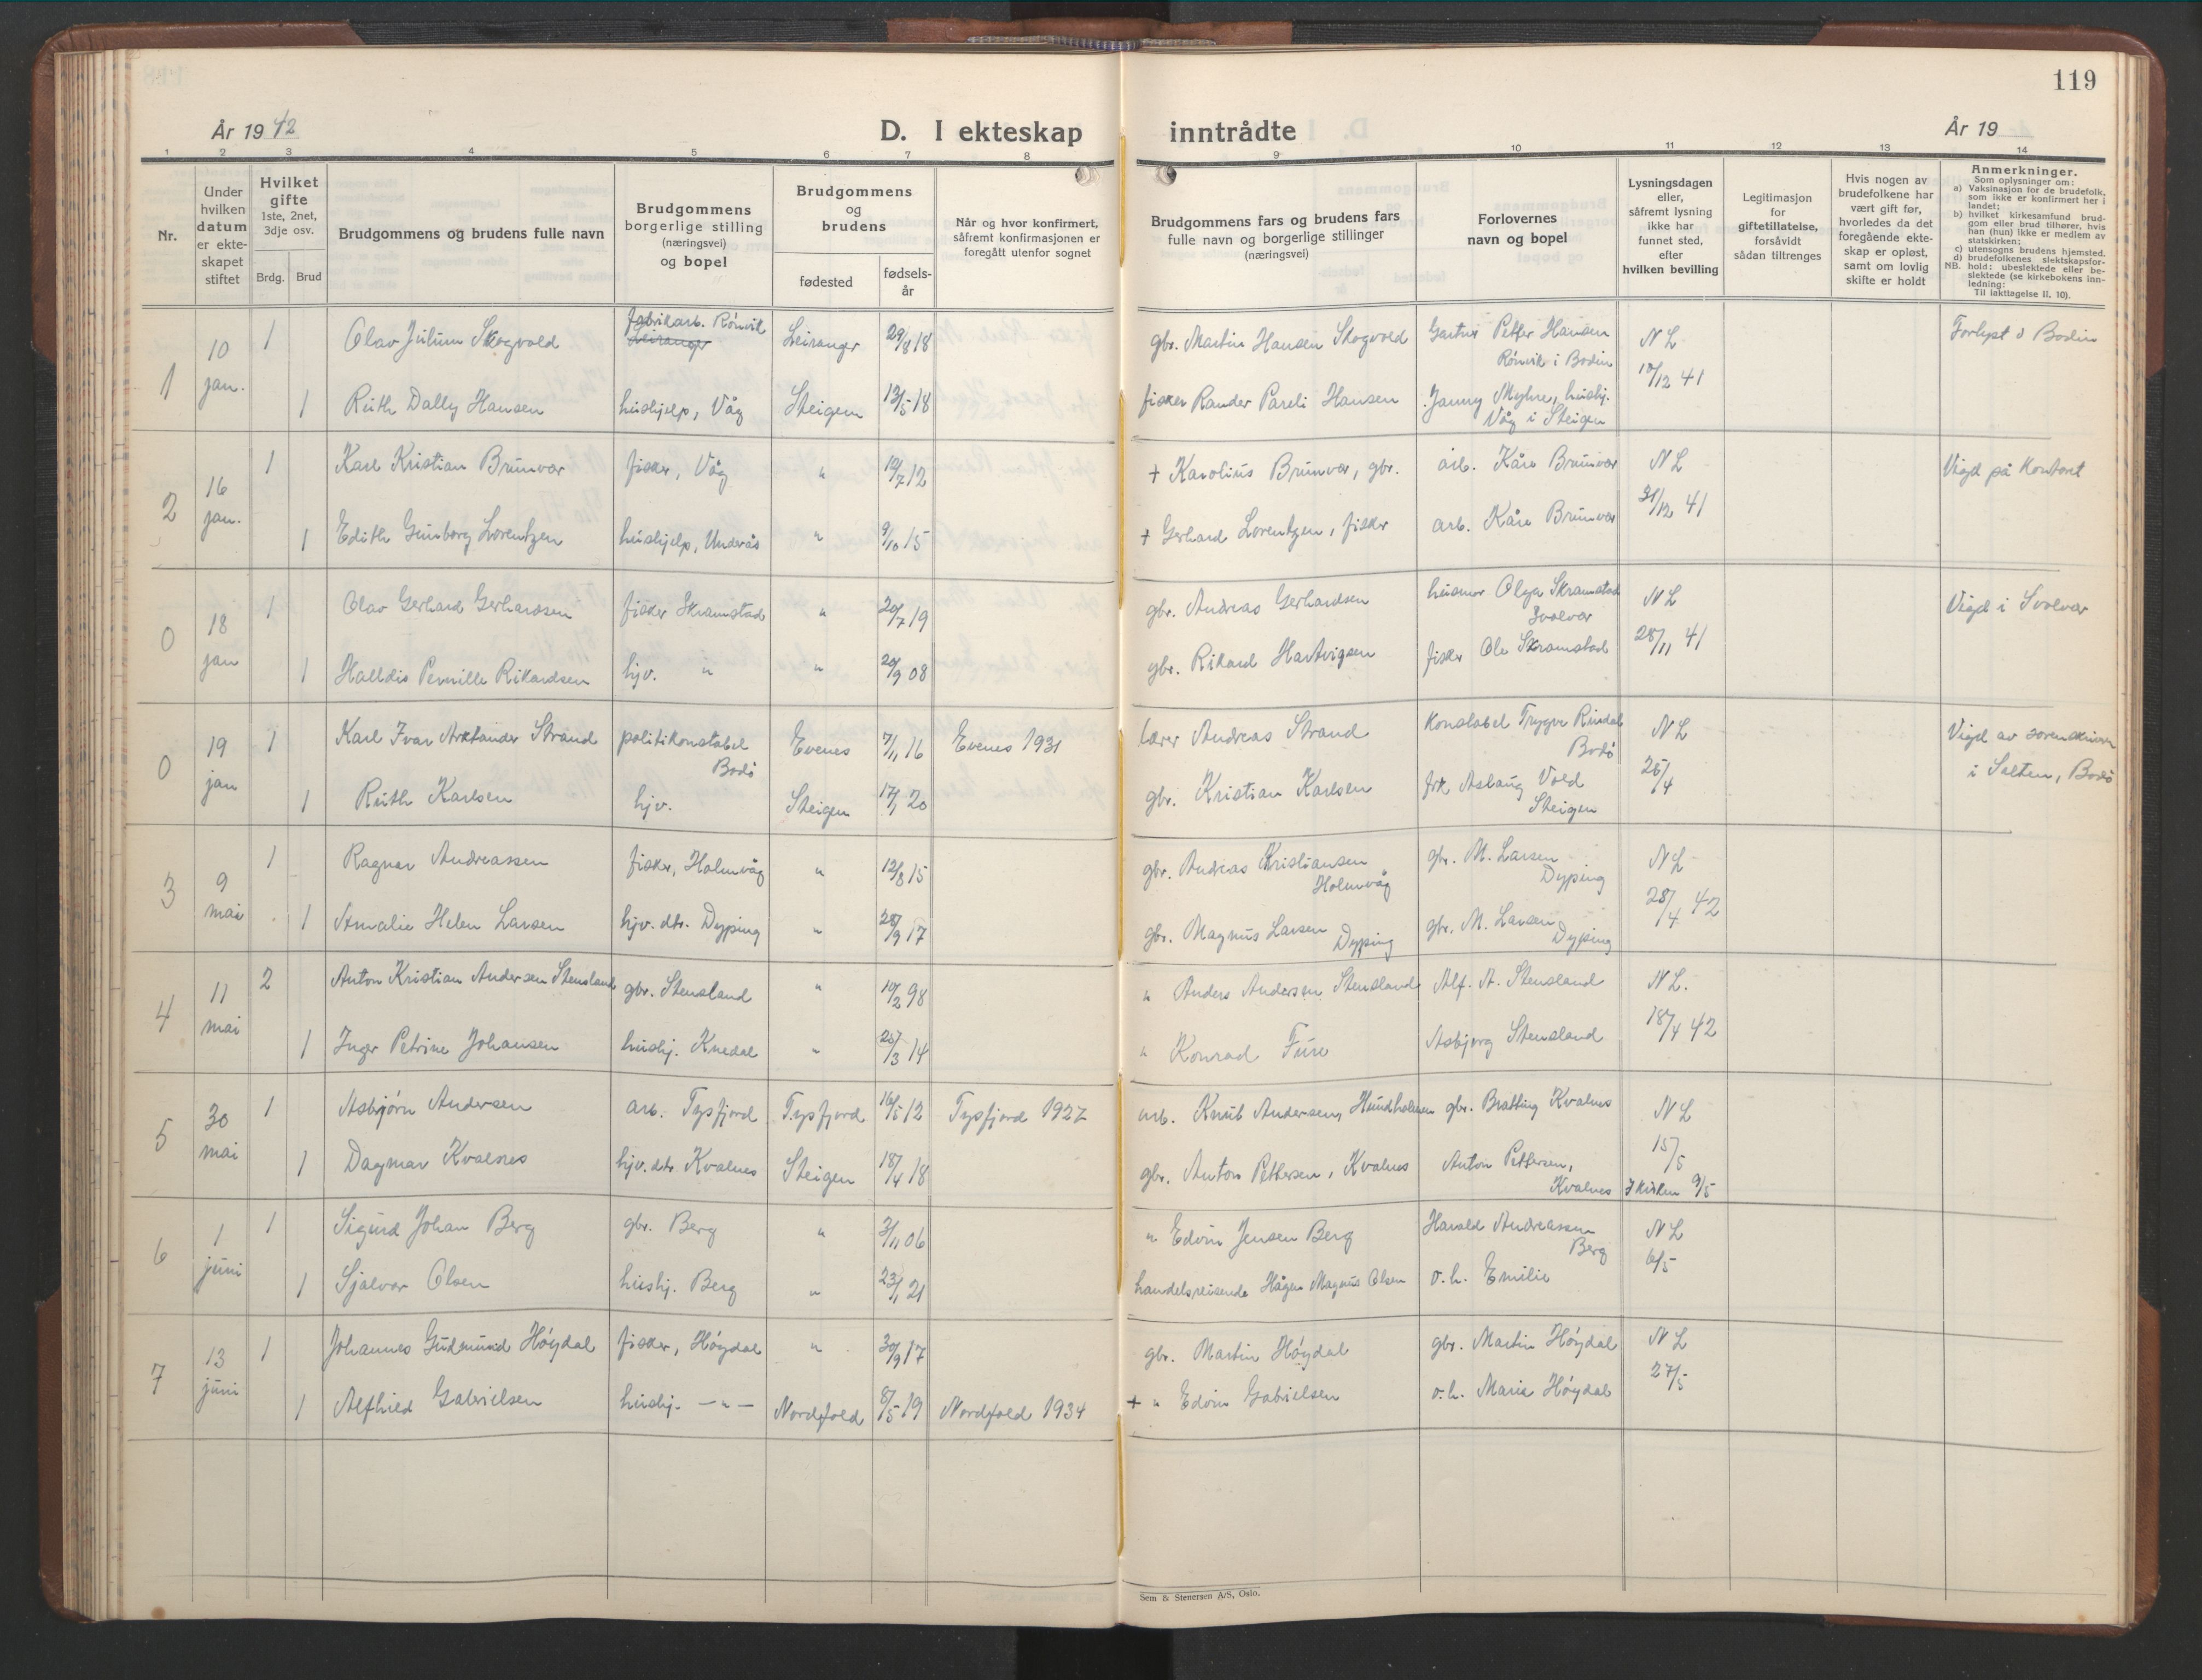 119
År 1942
D. I ekteskap inntrådte
År 19
1 2 3 4 5 6 7 8 9 10 11 12 13 14
Nr.
Under hvilken datum er ekteskapet stiftet
Hvilket gifte 1ste, 2net, 3dje osv.
Brdg. Brud
Brudgommens og brudens fulle navn
Brudgommens borgerlige stilling (næringsvei) og bopel
Brudgommens og brudens
fødested
fødselsår
Når og hvor konfirmert, såfremt konfirmasjonen er foregått utenfor sognet
Brudgommens fars og brudens fars fulle navn og borgerlige stillinger (næringsvei)
Forlovernes navn og bopel
Lysningsdagen eller, såfremt lysning ikke har funnet sted, efter hvilken bevilling
Legitimasjon for giftetillatelse, forsåvidt sådan tiltrenges
Hvis nogen av brudefolkene har vært gift før, hvorledes da det foregående ekteskap er opløst, samt om lovlig skifte er holdt
Anmerkninger.
Som oplysninger om:
a) Vaksinasjon for de brudefolk, som ikke er konfirmert her i landet;
b) hvilket kirkesamfund brudgom eller brud tilhører, hvis han (hun) ikke er medlem av statskirken;
c) utensogns brudens hjemsted.
d) brudefolkenes slektskapsforhold: ubeslektede eller beslektede (se kirkebokens innledning:
NB. Til iakttagelse II. 10).
1 10 jan. 1 Olav Julium Skogvold fabrikarb. Rönvik Leiranger Leiranger 29/8 18 gbr. Martin Hansen Skogvold Gartner Petter Hansen Rönvik i Bodin N L 10/12 41 Forlyst i Bodin
1 Ruth Dally Hansen hushjelp, Våg Steigen 13/5 18 fisker Rander Pareli Hansen Janny Myhre, hushj. Våg i Steigen
2 16 jan. 1 Karl Kristian Brunvær fisker, Våg " 10/7 12 + Karolius Brunvær, gbr. arb. Kåre Brunvær N L 31/12 41 Vigd på Kontort
1 Edith Gunborg Lorentzen hushjelp, Undrås " 9/10 15 + Gerhard Lorentzen, fisker arb. Kåre Brunvær
0 18 jan 1 Olav Gerhard Gerhardsen fisker Skramstad " 20/7 19 gbr. Andreas Gerhardsen husmor Olga Skramstad Svolvær N L 28/11 41 Vigd i Svolvær
1 Halldis Pernille Rikardsen hjv. " " 20/9 08 gbr. Rikard Hartvigsen fisker Ole Skramstad
0 19 jan 1 Karl Ivar Arktander Strand politikonstabel Bodö Evenes 7/11 16 Evenes 1931 lærer Andreas Strand Konstabel Trygve Rindal Bodö N L 25/4 Vigd av sorenskriver i Salten, Bodö
1 Ruth Karlsen hjv. Steigen 17/1 20 gbr. Kristian Karlsen frk Aslaug Vold Steigen
3 9 mai 1 Ragnar Andreassen fisker, Holmvåg " 12/8 15 gbr. Andreas Kristiansen Holmvåg gbr. M. Larsen Dyping N L 28/4 42
1 Amalie Helen Larsen hjv. dtr. Dyping " 28/9 17 gbr. Magnus Larsen Dyping gbr. M. Larsen Dyping
4 11 mai 2 Anton Kristian Andersen Stensland gbr. Stensland " 10/2 98 " Anders Andersen Stensland Alf. A. Stensland N L. 18/4 42
1 Inger Petrine Johansen hushj. Knedal " 25/3 14 " Konrad Fure Asbjørg Stensland
5 30 mai 1 Asbjörn Andersen arb. Tysfjord Tysfjord 16/5 12 Tysfjord 1927 arb. Knut Andersen, Hundholmen gbr. Bratting Kvalnes N L 15/5
1 Dagmar Kvalnes hjv. dtr Kvalnes Steigen 18/4 18 gbr. Anton Pettersen, Kvalnes Anton Pettersen, Kvalnes I kirken 9/5
6 1 juni 1 Sigurd Johan Berg gbr. Berg " 3/11 06 " Edvin Jensen Berg Harald Andreassen Berg N L 6/5
1 Sjalvor Olsen hushj. Berg " 23/1 21 handelsreisende Hågen Magnus Olsen o.h. Emilie
7 13 juni 1 Johannes Gudmund Höydal fisker, Höydal " 30/9 17 gbr. Martin Höydal gbr. Martin Höydal N L 27/5
1 Alfhild Gabrielsen hushj. — " — Nordfold 8/5 19 Nordfold 1934 + " Edvin Gabrielsen o.h. Marie Höydal
Sem & Stenersen A/S, Oslo.